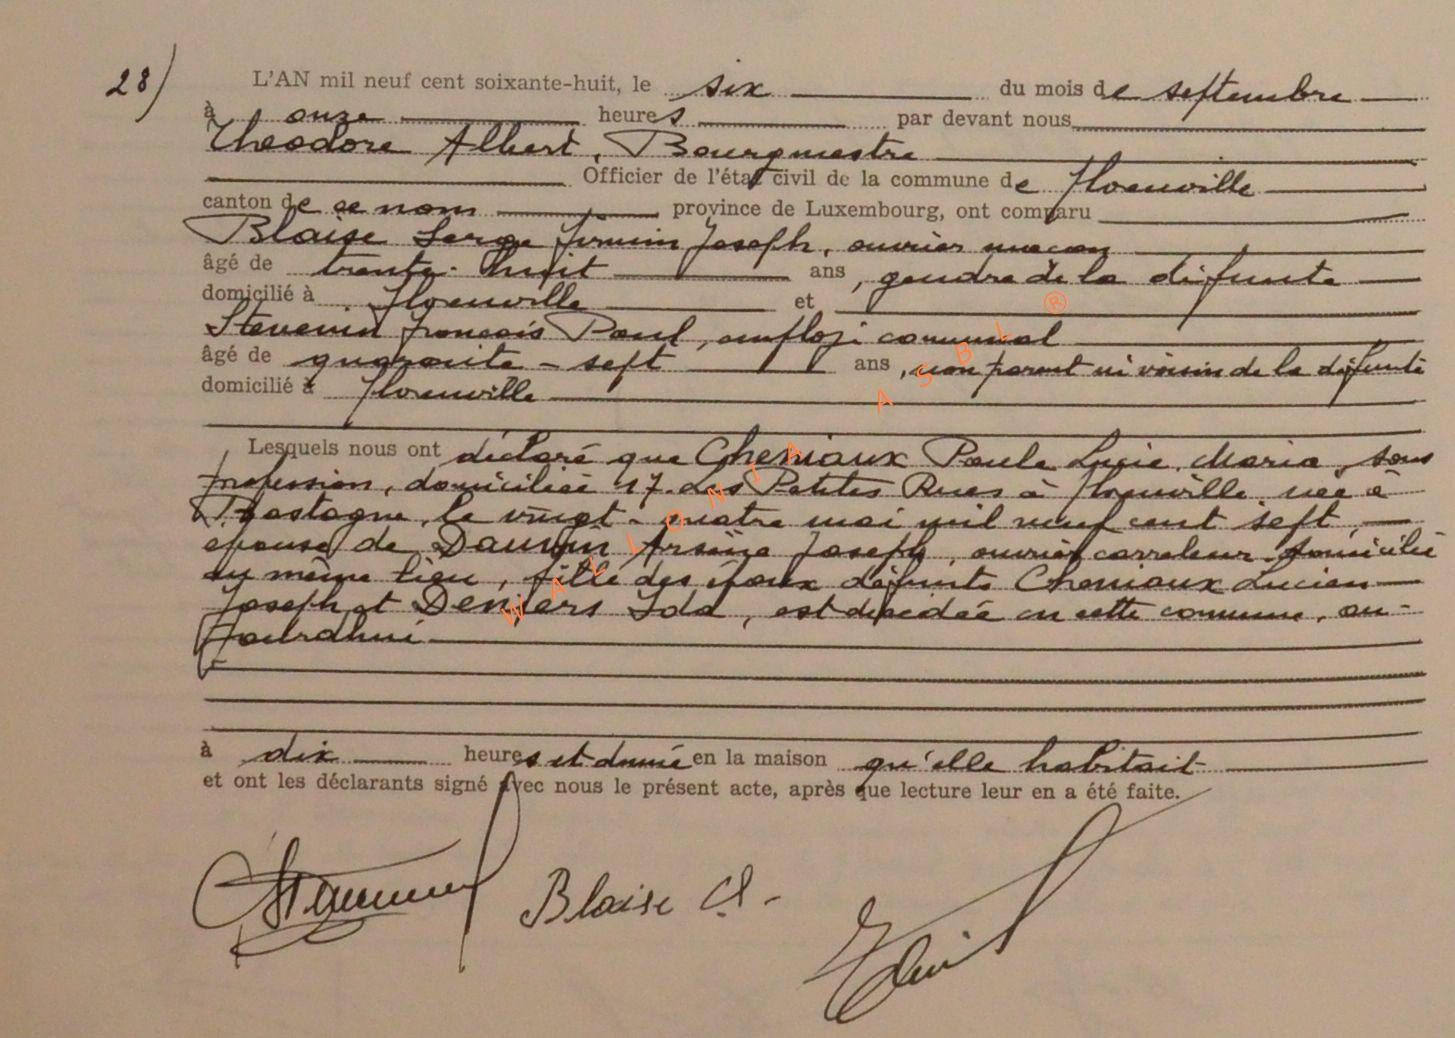 28)
L'AN mil neuf cent soixante-huit, le six du mois de septembre
à onze heures par devant nous
Théodore Albert, Bourgmestre
Officier de l'état civil de la commune de Florenville
canton de ce nom province de Luxembourg, ont comparu
Blaise Serge Firmin Joseph, ouvrier maçon
âgé de trente-huit ans, gendre de la défunte
domicilié à Florenville et
Stevenin François Paul, employé communal
âgé de quarante-sept ans, non parent ni voisin de la défunte
domicilié à Florenville
Lesquels nous ont déclaré que Cheniaux Paule Lucie Maria, sans
profession, domiciliée 17. Les Petites Rues à Florenville, née à
Bastogne, le vingt-quatre mai mil neuf cent sept,
épouse de Dauvin Arsène Joseph, ouvrier carreleur domicilié
au même lieu, fille des époux défunts Cheniaux Lucien
Joseph et Deniers Ida, est décédée en cette commune, au-
jourdhui
à dix heures et demie en la maison qu'elle habitait
et ont les déclarants signé avec nous le présent acte, après que lecture leur en a été faite.
Blaise
WALLONIA ASBL ®